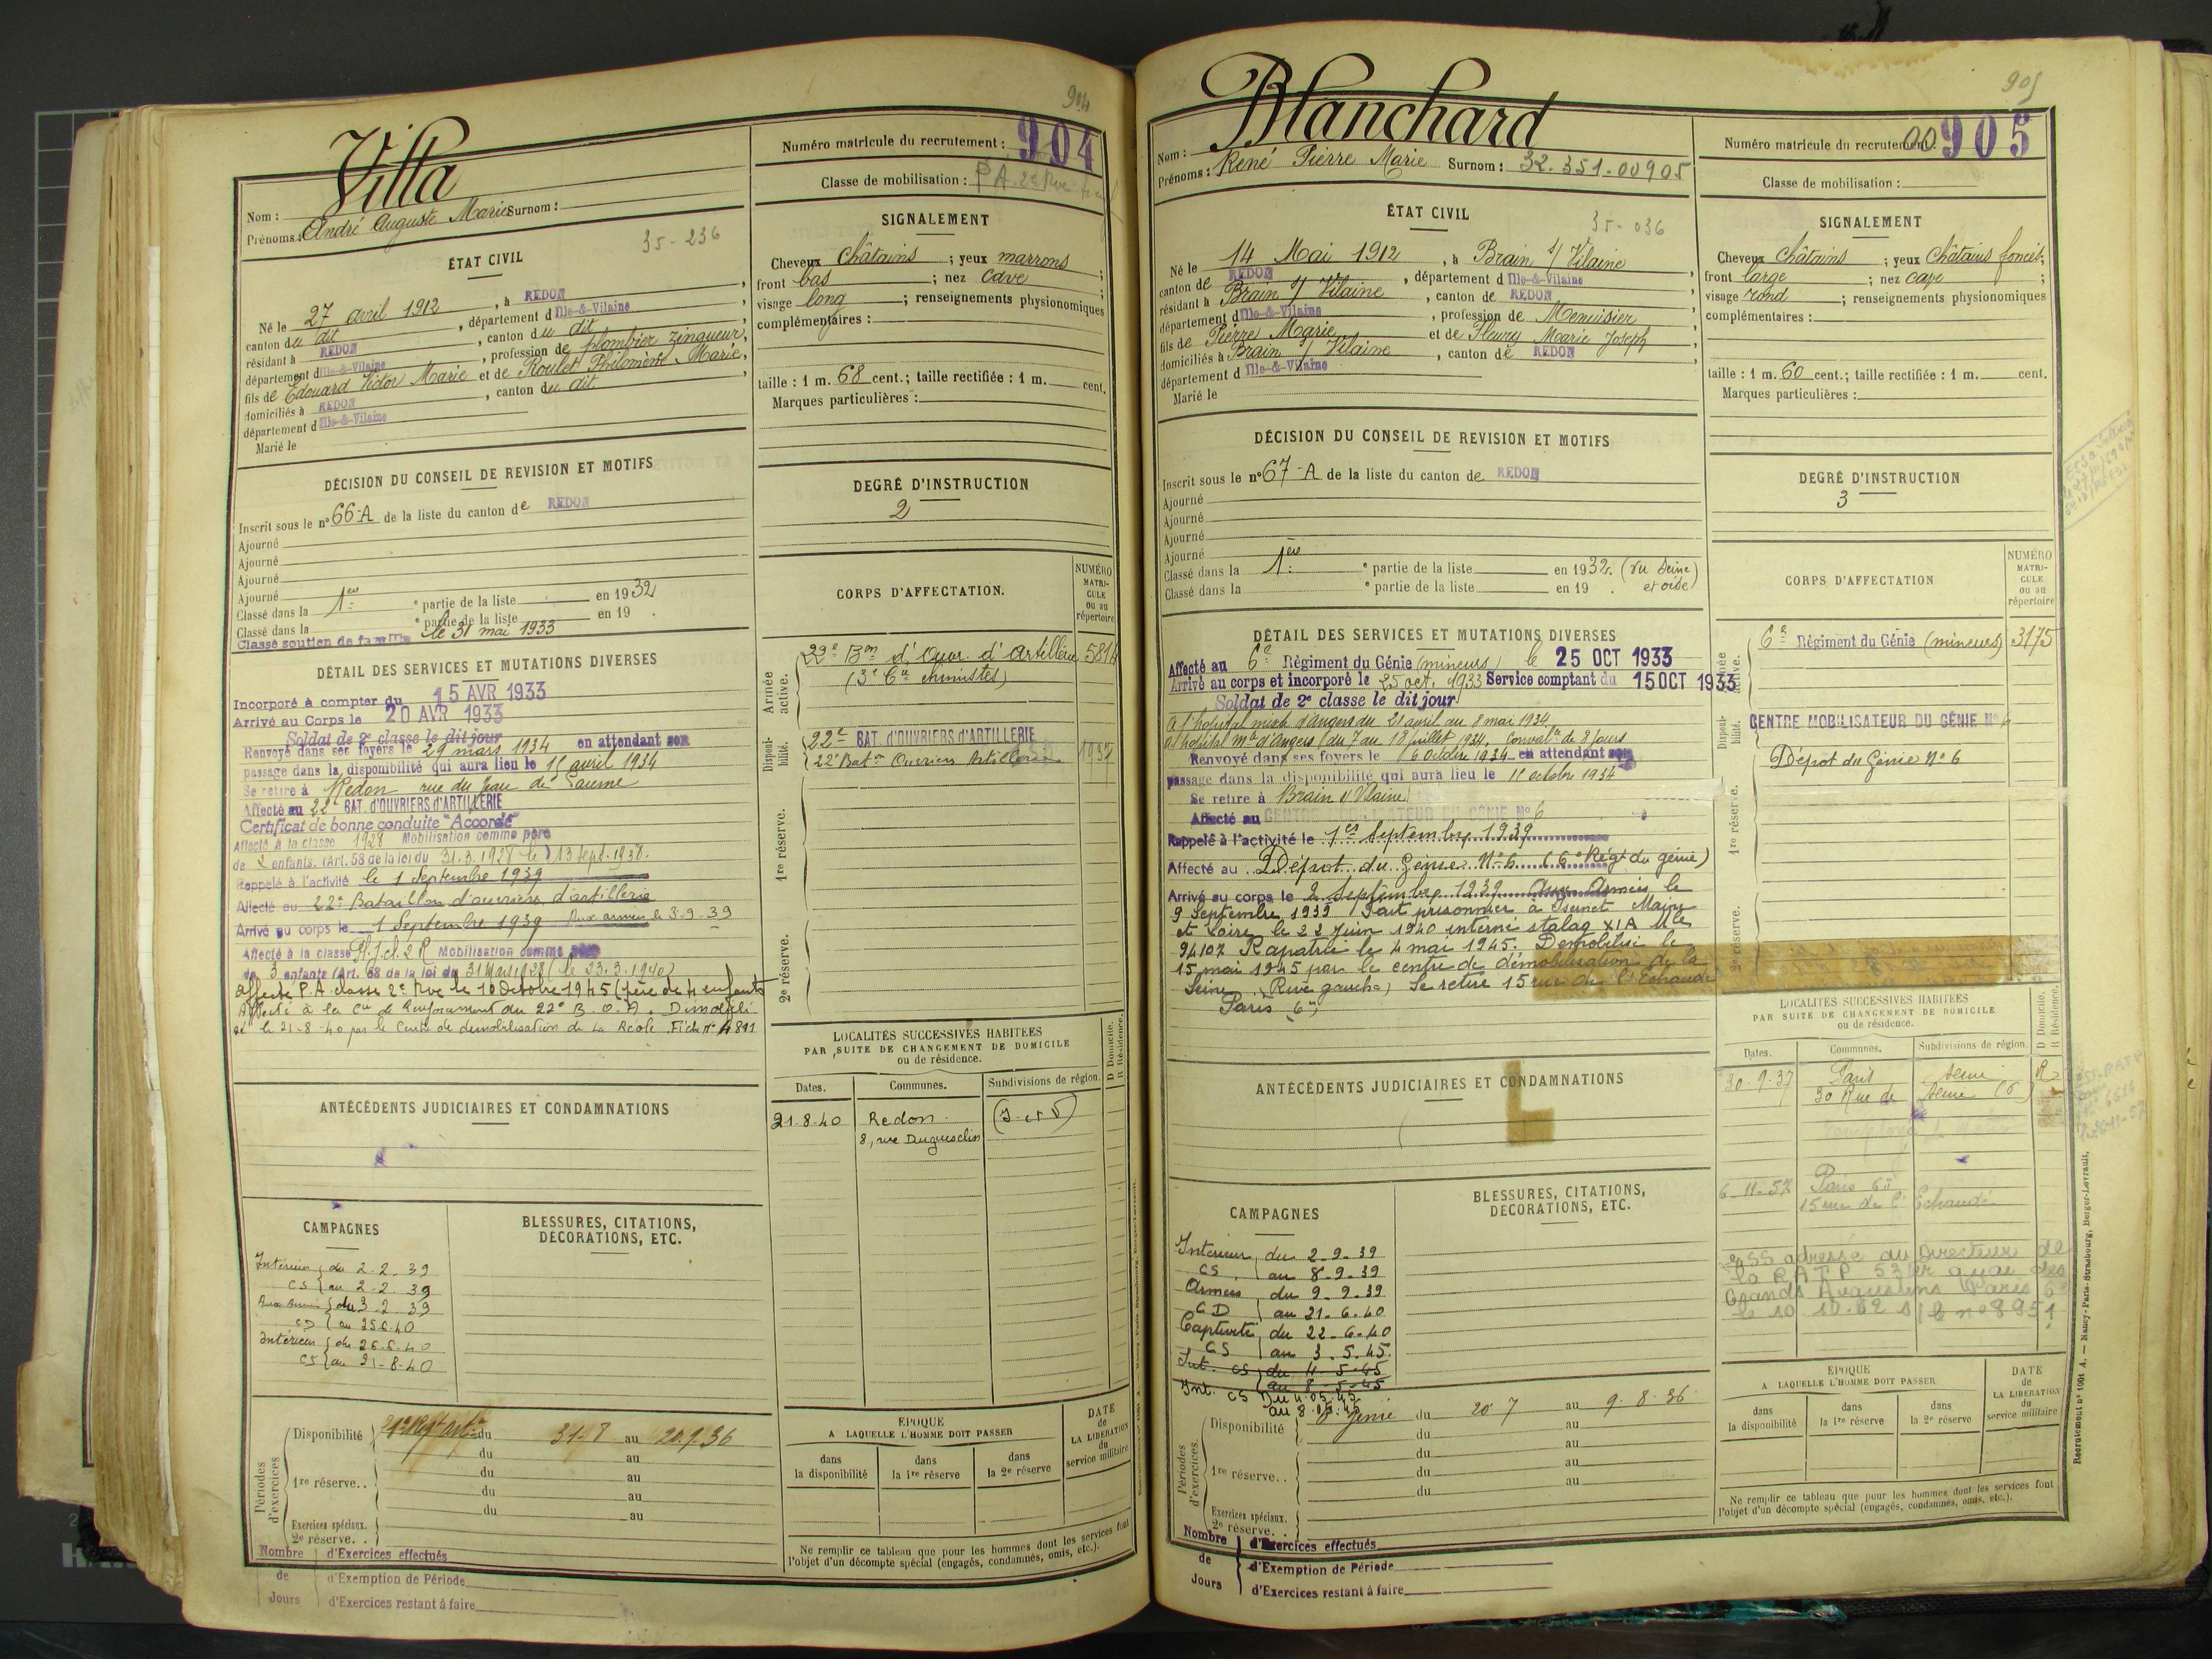 904
Villa
Nom :
Prénoms : André Auguste Marie Surnom :
Numéro matricule du recrutement : 904
Classe de mobilisation : P.A. 2e Rve
ÉTAT CIVIL
35-236
Né le 27 avril 1912, à REDON,
canton du dit, département d Ille-&-Vilaine,
résidant à REDON, canton du dit,
département d Ille-&-Vilaine, profession de plombier zingueur,
fils de Edouard Victor Marie et de Roulet Philomène Marie,
domiciliés à REDON, canton du dit
département d Ille-&-Vilaine
Marié le
SIGNALEMENT
Cheveux châtains ; yeux marrons ;
front bas ; nez cave ;
visage long ; renseignements physionomiques
complémentaires :
taille : 1 m. 68 cent.; taille rectifiée : 1 m. cent.
Marques particulières :
DÉCISION DU CONSEIL DE REVISION ET MOTIFS
Inscrit sous le n° 66-A de la liste du canton de REDON
Ajourné
Ajourné
Ajourné
Ajourné
Classé dans la 1ère partie de la liste en 1932
Classé dans la e partie de la liste en 19 .
Classé soutien de famille le 31 mai 1933
DEGRÉ D'INSTRUCTION
2
DÉTAIL DES SERVICES ET MUTATIONS DIVERSES
Incorporé à compter du 15 AVR 1933
Arrivé au Corps le 20 AVR 1933
Soldat de 2e classe le dit jour
Renvoyé dans ses foyers le 29 mars 1934 en attendant son
passage dans la disponibilité qui aura lieu le 15 avril 1934
Se retire à Redon rue du Jeu de Paume
Affecté au 22e BAT. D'OUVRIERS D'ARTILLERIE
Certificat de bonne conduite "Accordé"
Affecté à la classe 1928 Mobilisation comme père
de 2 enfants. (Art. 58 de la loi du 31.3.1928 le 13 sept. 1938.
Rappelé à l'activité le 1 Septembre 1939
Affecté au 22e Bataillon d'ouvriers d'artillerie
Arrivé au corps le 1 Septembre 1939 Aux armées le 3-9-39
Affecté à la classe Mobilisation comme père
de 3 enfants (Art. 58 de la loi du 31 Mars 1928 (le 23.3.1940)
Affecté P.A. classe 2e Rve le 10 Octobre 1945 (père de 4 enfants
Affecté à la Cie de Renforcement du 22e B.O.A. Démobili-
sé le 21-8-40 par le Centre de démobilisation de La Réole. Fiche n° 4891
CORPS D'AFFECTATION.
NUMÉRO MATRI-CULE ou au répertoire
Armée active.
22e Bon d'Ouv. d'Artillerie
(3e Cie chimistes)
Disponi-bilité.
22e BAT. D'OUVRIERS D'ARTILLERIE
22e Baton Ouvriers Artillerie
1re réserve.
2e réserve.
LOCALITÉS SUCCESSIVES HABITÉES
PAR SUITE DE CHANGEMENT DE DOMICILE
ou de résidence.
D Domicile. R Résidence.
Dates. Communes. Subdivisions de région.
21-8-40 Redon (I-et-V)
8, rue Duguesclin
ANTÉCÉDENTS JUDICIAIRES ET CONDAMNATIONS
CAMPAGNES
Intérieur du 2.2.39
CS au 2.2.39
Aux Armées du 3.2.39
CD au 25.6.40
Intérieur du 26.6.40
CS au 21-8-40
BLESSURES, CITATIONS,
DÉCORATIONS, ETC.
Périodes d'exercices
Disponibilité du 31-8 au 20.9.36
du au
1re réserve.. du au
du au
du au
Exercices spéciaux.
2e réserve. .
Nombre de Jours
d'Exercices effectués
d'Exemption de Période
d'Exercices restant à faire
EPOQUE
A LAQUELLE L'HOMME DOIT PASSER
dans la disponibilité
dans la 1re réserve
dans la 2e réserve
DATE de LA LIBÉRATION du service militaire
Ne remplir ce tableau que pour les hommes dont les services font
l'objet d'un décompte spécial (engagés, condamnés, omis, etc.).
905
Blanchard
Nom :
Prénoms : René Pierre Marie Surnom : 32.351.00905
Numéro matricule du recrutement : 00905
Classe de mobilisation :
ÉTAT CIVIL
35-036
Né le 14 Mai 1912, à Brain s/ Vilaine,
canton de REDON, département d Ille-&-Vilaine,
résidant à Brain s/ Vilaine, canton de REDON,
département d Ille-&-Vilaine, profession de Menuisier,
fils de Pierre Marie et de Fleury Marie Joseph,
domiciliés à Brain s/ Vilaine, canton de REDON,
département d Ille-&-Vilaine
Marié le
SIGNALEMENT
Cheveux châtains ; yeux châtains foncés;
front large ; nez cave ;
visage rond ; renseignements physionomiques
complémentaires :
taille : 1 m. 60 cent.; taille rectifiée : 1 m. cent.
Marques particulières :
DÉCISION DU CONSEIL DE REVISION ET MOTIFS
Inscrit sous le n° 67-A de la liste du canton de REDON
Ajourné
Ajourné
Ajourné
Ajourné
Classé dans la 1ère partie de la liste en 1932. (vu Seine
Classé dans la e partie de la liste en 19 . et oise)
DEGRÉ D'INSTRUCTION
3
DÉTAIL DES SERVICES ET MUTATIONS DIVERSES
Affecté au 6e Régiment du Génie (mineurs) le 25 OCT 1933
Arrivé au corps et incorporé le 25 oct. 1933 Service comptant du 15 OCT 1933
Soldat de 2e classe le dit jour
A l'hôpital mixte d'Angers du 21 avril au 8 mai 1934
A l'hôpital mte d'Angers (du 7 au 13 juillet 1934, Convalce de 8 jours
Renvoyé dans ses foyers le 6 Octobre 1934 en attendant son
passage dans la disponibilité qui aura lieu le 15 octobre 1934
Se retire à Brain s/ Vilaine
Affecté au CENTRE MOBILISATEUR DU GÉNIE N° 6
Rappelé à l'activité le 1er Septembre 1939
Affecté au Dépôt du Génie N° 6 (6e Régt du génie)
Arrivé au corps le 2 Septembre 1939 Aux Armées le
9 Septembre 1939 Fait prisonnier à Maine
et Loire le 22 Juin 1940 interné stalag XIA Mle
94107 Rapatrié le 4 mai 1945. Démobilisé le
15 mai 1945 par le centre de démobilisation de la
Seine (Rive gauche) Se retire 15 rue de l'Echaudé
Paris (6e)
CORPS D'AFFECTATION
NUMÉRO MATRI-CULE ou au répertoire
Armée active.
6e Régiment du Génie (mineurs) 3175
Disponi-bilité.
CENTRE MOBILISATEUR DU GÉNIE N° 6
Dépôt du Génie N° 6
1re réserve.
2e réserve.
LOCALITÉS SUCCESSIVES HABITÉES
PAR SUITE DE CHANGEMENT DE DOMICILE
ou de résidence.
D Domicile. R Résidence.
Dates. Communes. Subdivisions de région.
30-9-37 Paris Seine R
30 Rue de Seine (6
6-11-57 Paris 6e
15 rue de l'Echaudé
ESS adressé au Directeur de
la RATP 53 ter quai des
Grands Augustins Paris 6e
le 10.10.62 s/ le n° 8951
ANTÉCÉDENTS JUDICIAIRES ET CONDAMNATIONS
CAMPAGNES
Intérieur du 2-9-39
CS au 8-9-39
Armées du 9-9-39
CD au 21-6-40
Captivité du 22-6-40
CS au 3.5.45.
Int. CS du 4-5-45
au 8-5-45
Int. CS Du 4.05.45
au 8.05.45
BLESSURES, CITATIONS,
DÉCORATIONS, ETC.
Périodes d'exercices
Disponibilité 6e Génie du 20-7 au 9-8-36
du au
1re réserve.. du au
du au
du au
Exercices spéciaux.
2e réserve. .
Nombre de Jours
d'Exercices effectués
d'Exemption de Période
d'Exercices restant à faire
EPOQUE
A LAQUELLE L'HOMME DOIT PASSER
dans la disponibilité
dans la 1re réserve
dans la 2e réserve
DATE de LA LIBÉRATION du service militaire
Ne remplir ce tableau que pour les hommes dont les services font
l'objet d'un décompte spécial (engagés, condamnés, omis, etc.).
Recrutement n° 1001 A. — Nancy-Paris-Strasbourg, Berger-Levrault.